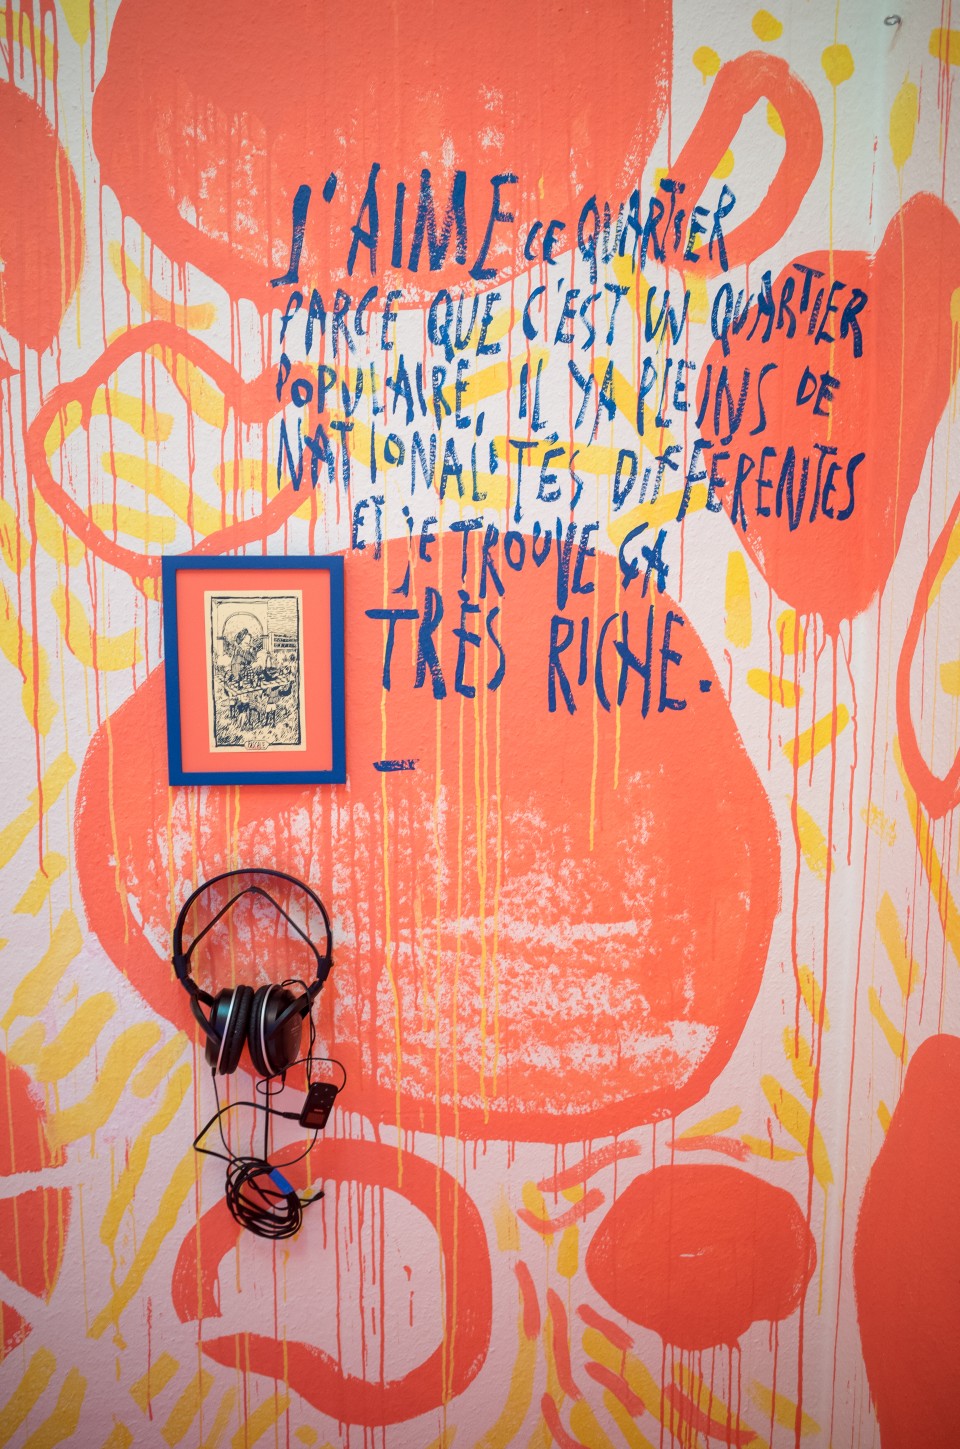 J'AIME CE QUARTIER
PARCE QUE C'EST UN QUARTIER
POPULAIRE, IL YA PLEINS DE
NATIONALITÉS DIFFÉRENTES
ET JE TROUVE ÇA
TRÈS RICHE.